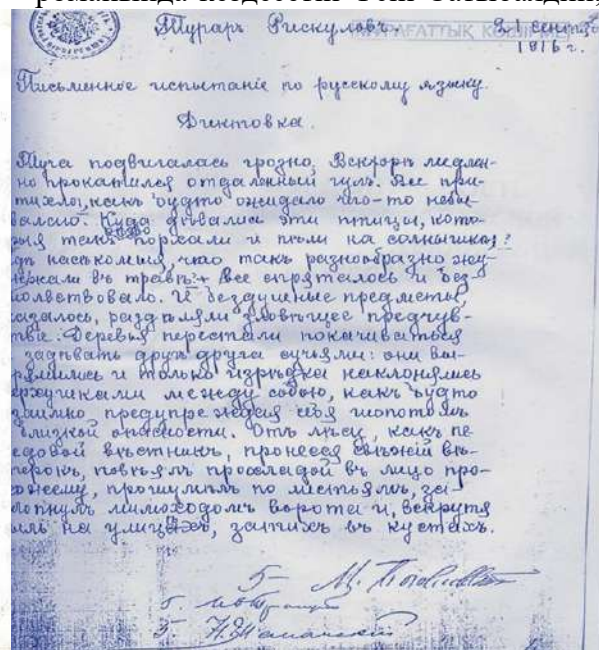 романында кездесетін
Тураръ Рискуловъ. 21 сентяб
1916 г.
Письменное испытаніе по русскому языку.
Диктовка.
Туча подвигалась грозно. Вскорѣ медлен-
но прокатился отдаленный гулъ. Все при-
тихло, какъ будто ожидало чего-то небы-
валаго. Куда дѣвались эти птицы, кото-
рыя такъ порхали и пѣли на солнышкѣ?
насѣкомыя, что такъ разнообразно жу-
жжали въ травѣ? Все спряталось и без-
молвствовало. И бездушные предметы,
казалось, раздѣляли зловѣщее предчув-
твіе. Деревья перестали покачиваться
задѣвать другъ друга сучьями: они вы-
рямились и только изрѣдка наклонялись
ерхушками между собою, какъ будто
заимно предупреждая себя шопотомъ
близкой опасности. Отъ лѣсу, какъ пе-
едовой вѣстникъ, пронесся свѣжій вѣ-
терокъ, повѣялъ прохладой въ лицо про-
хожему, прошумѣлъ по листьямъ, за-
хлопнулъ мимоходомъ ворота и, вскрутя
пыль на улицѣ, затихъ въ кустахъ.
5- М.
5
5-